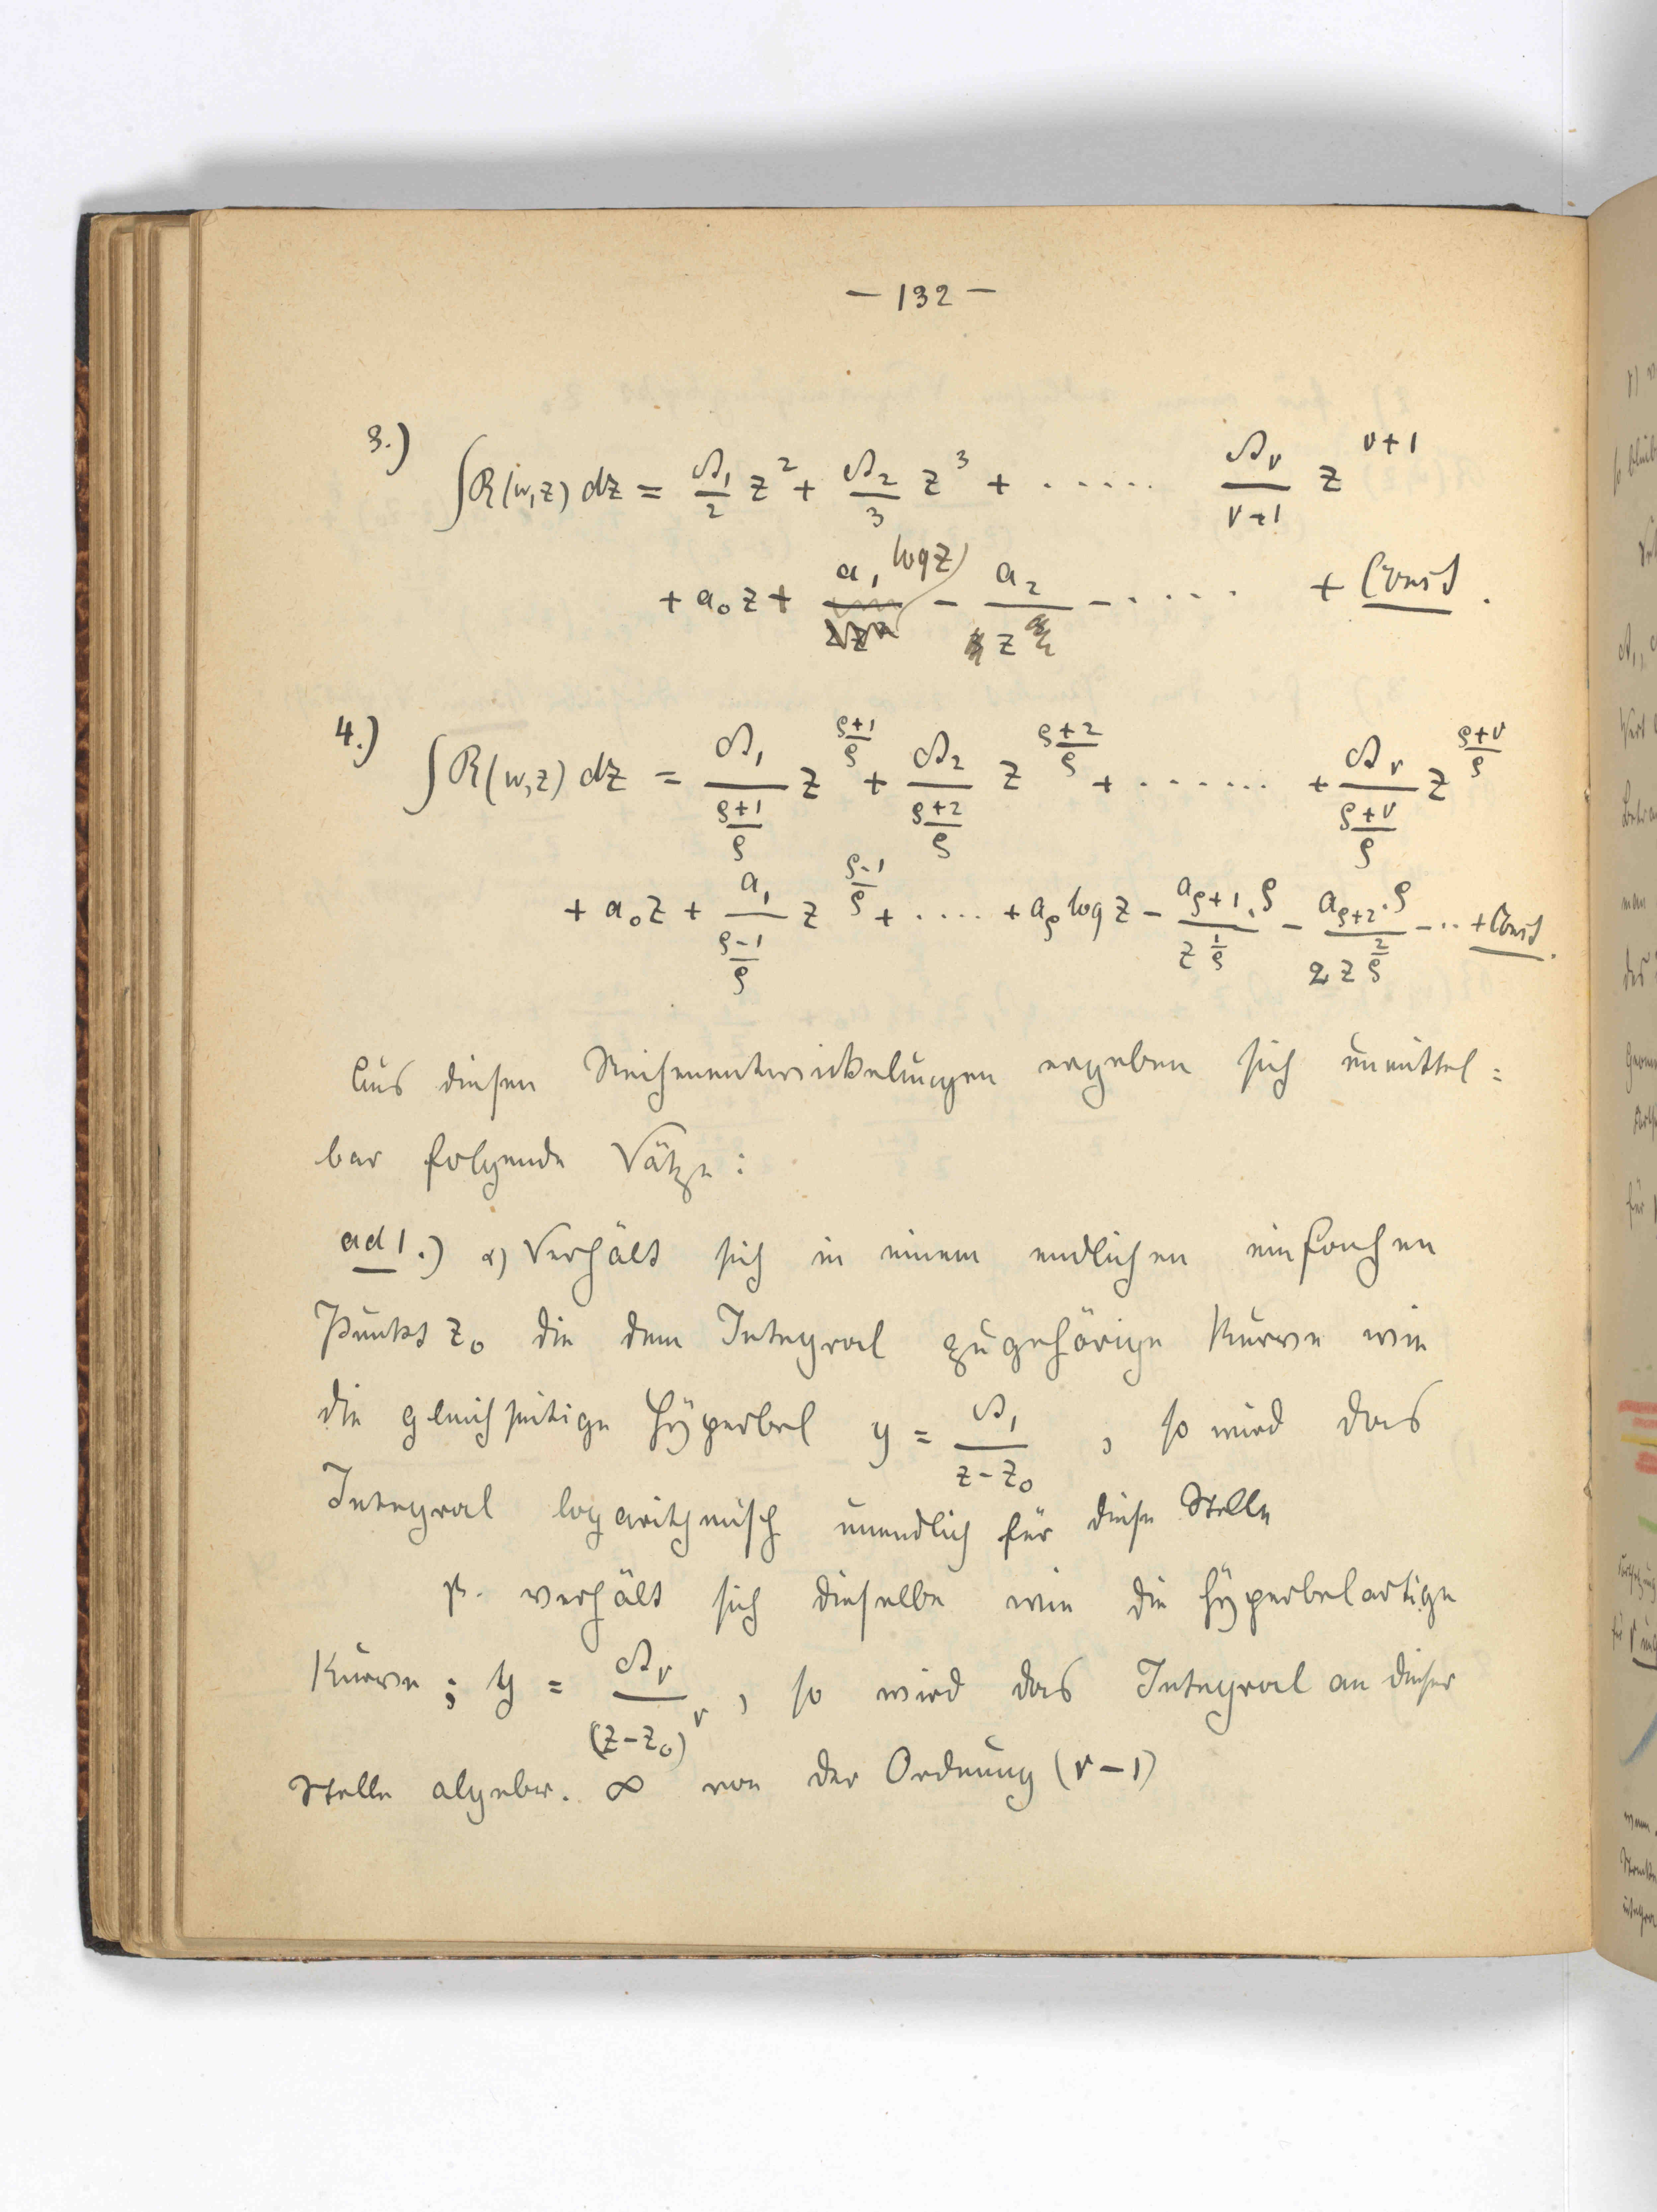 — 132 —
3.) ∫R(w,z) dz = A₁/2 z² + A₂/3 z³ + ····· Aᵥ/(ν+1) z^(ν+1)
+ a₀ z + a₁ log z − a₂/z − ····· + Const.
4.) ∫R(w,z) dz = A₁/((ρ+1)/ρ) z^((ρ+1)/ρ) + A₂/((ρ+2)/ρ) z^((ρ+2)/ρ) + ······ + Aᵥ/((ρ+ν)/ρ) z^((ρ+ν)/ρ)
+ a₀ z + a₁/((ρ−1)/ρ) z^((ρ−1)/ρ) + ···· + a_ρ log z − a_(ρ+1)·ρ/z^(1/ρ) − a_(ρ+2)·ρ/(2 z^(2/ρ)) − ·· + Const.
Aus diesen Reihenentwickelungen ergeben sich unmittel=
bar folgende Sätze:
ad 1.) α) Verhält sich in einem endlichen einfachen
Punkt z₀ die dem Integral zugehörige Kurve wie
die gleichseitige Hyperbel y = A₁/(z−z₀), so wird das
Integral logarithmisch unendlich für diese Stelle
β. verhält sich dieselbe wie die hyperbelartige
Kurve; y = Aᵥ/(z−z₀)^ν, so wird das Integral an dieser
Stelle algebr. ∞ von der Ordnung (ν−1)